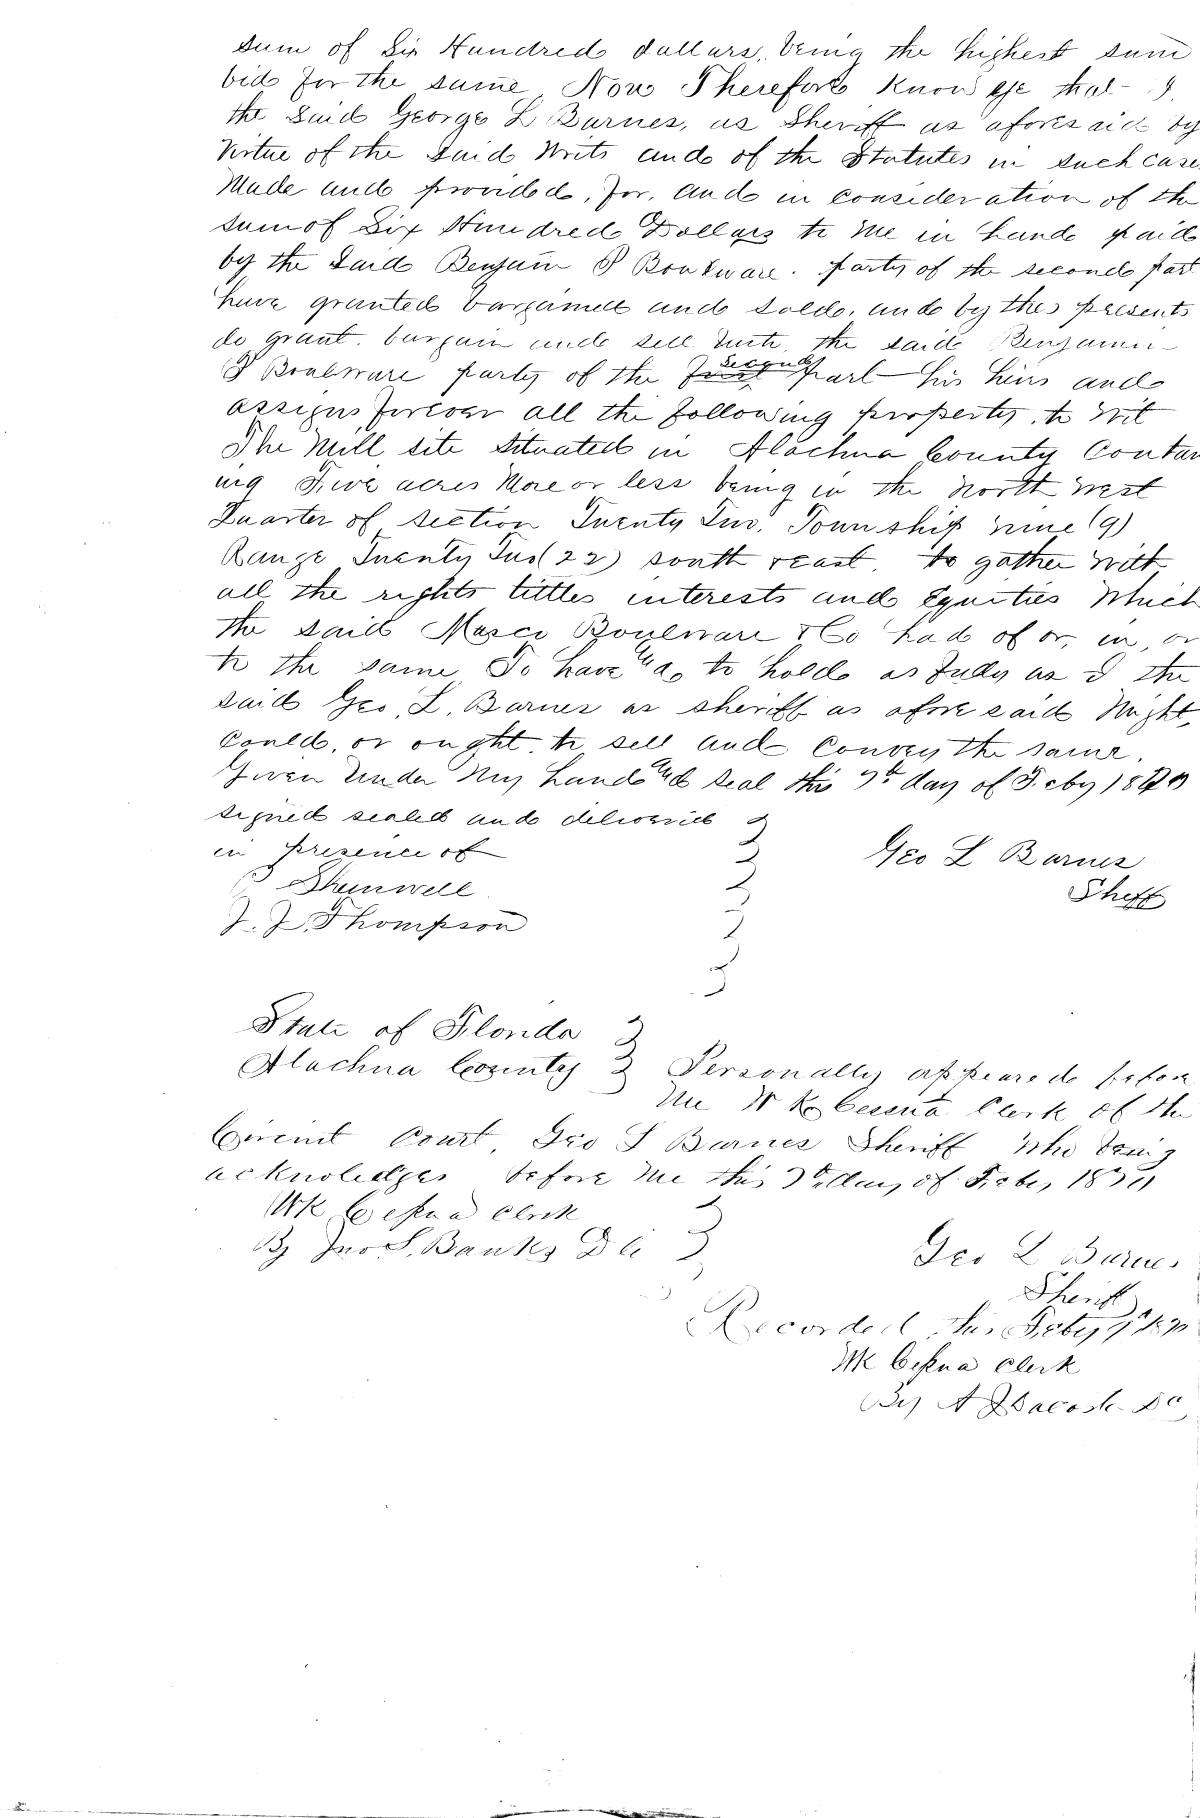 sum of Six Hundred dollars, being the highest sum
bid for the same, Now Therefore Know ye that - I,
the Said George L Barnes, as Sheriff as aforesaid by
Virtue of the Said Writs and of the Statutes in such case
Made and provided, for, and in consideration of the
sum of Six Hundred Dollars to Me in hand paid
by the Said Benjam P Boulware. party of the second part
have granted bargained and sold, and by thes presents
do grant. bargain and sell unto the said Benjamin
P Boulware party of the first second part - his heirs and
assigns forever all the following property, to wit
The Mill site Situated in Alachua County Contan
ing Five acres More or less being in the North West
Quarter of Section Twenty Two, Township nine (9)
Range Twenty Two (22) south east, to gather with
all the rights tittles interests and Equities Which
the said Boulware & Co had of or, in, or
to the same To have & to hold as fully as I the
said Geo. L. Barnes as sheriff as afore said Might,
Could, or ought to sell and Convey the same.
Given Under My hand and seal this 7th day of Feby 1870
signed sealed and delivered
in presence of
Geo L Barnes
Sheff
J. J. Thompson
State of Florida
Alachua County Personally appeared before
Me W K Cessna Clerk of the
Circuit Court, Geo L Barnes Sheriff Who being
acknoledges before Me this 7th day of Feby 1870
WK Cessna Clerk
By Jno S. Banks D Cl
Geo L Barnes
Sheriff
Recorded this Feby
WK Cessna Clerk
By A DC